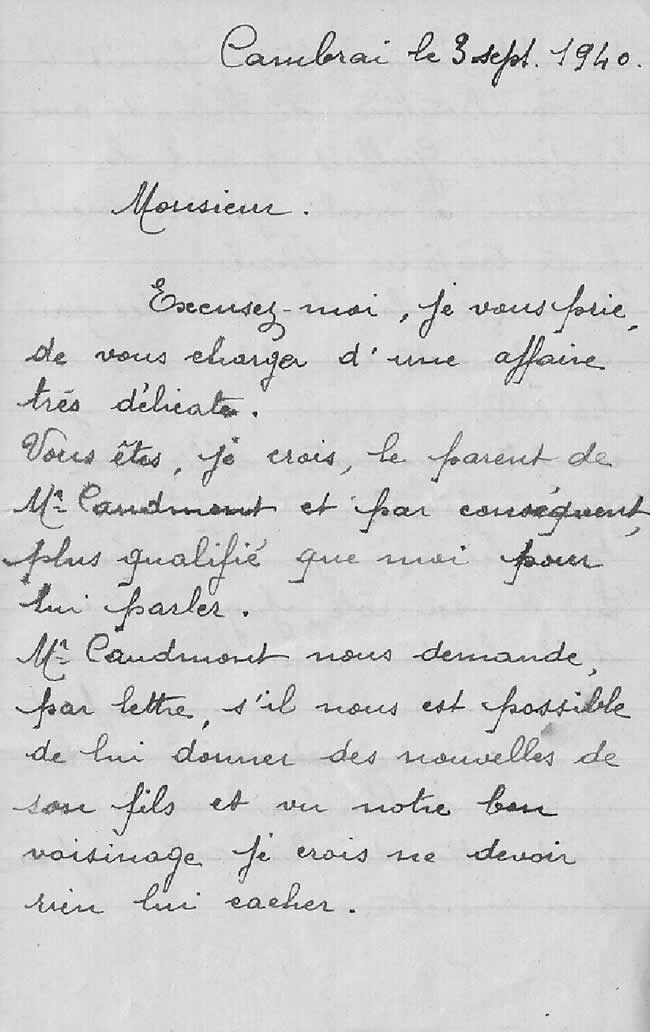 Cambrai le 3 sept. 1940.
Monsieur.
Excusez-moi, je vous prie,
de vous charger d'une affaire
très délicate.
Vous êtes, je crois, le parent de
Mr Caudmont et par conséquent,
plus qualifié que moi pour
lui parler.
Mr Caudmont nous demande,
par lettre, s'il nous est possible
de lui donner des nouvelles de
son fils et vu notre bon
voisinage je crois ne devoir
rien lui cacher.